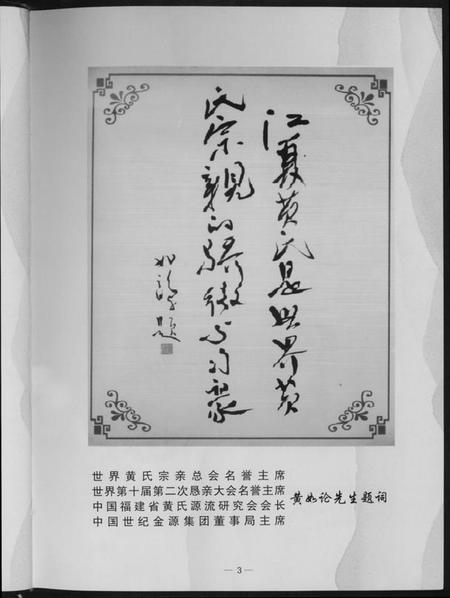 江夏黄氏是世界黄
氏宗親的骄傲与自豪
如论题
世界黄氏宗亲总会名誉主席
世界第十届第二次恳亲大会名誉主席
中国福建省黄氏源流研究会会长
中国世纪金源集团董事局主席
黄如论先生题词
— 3 —